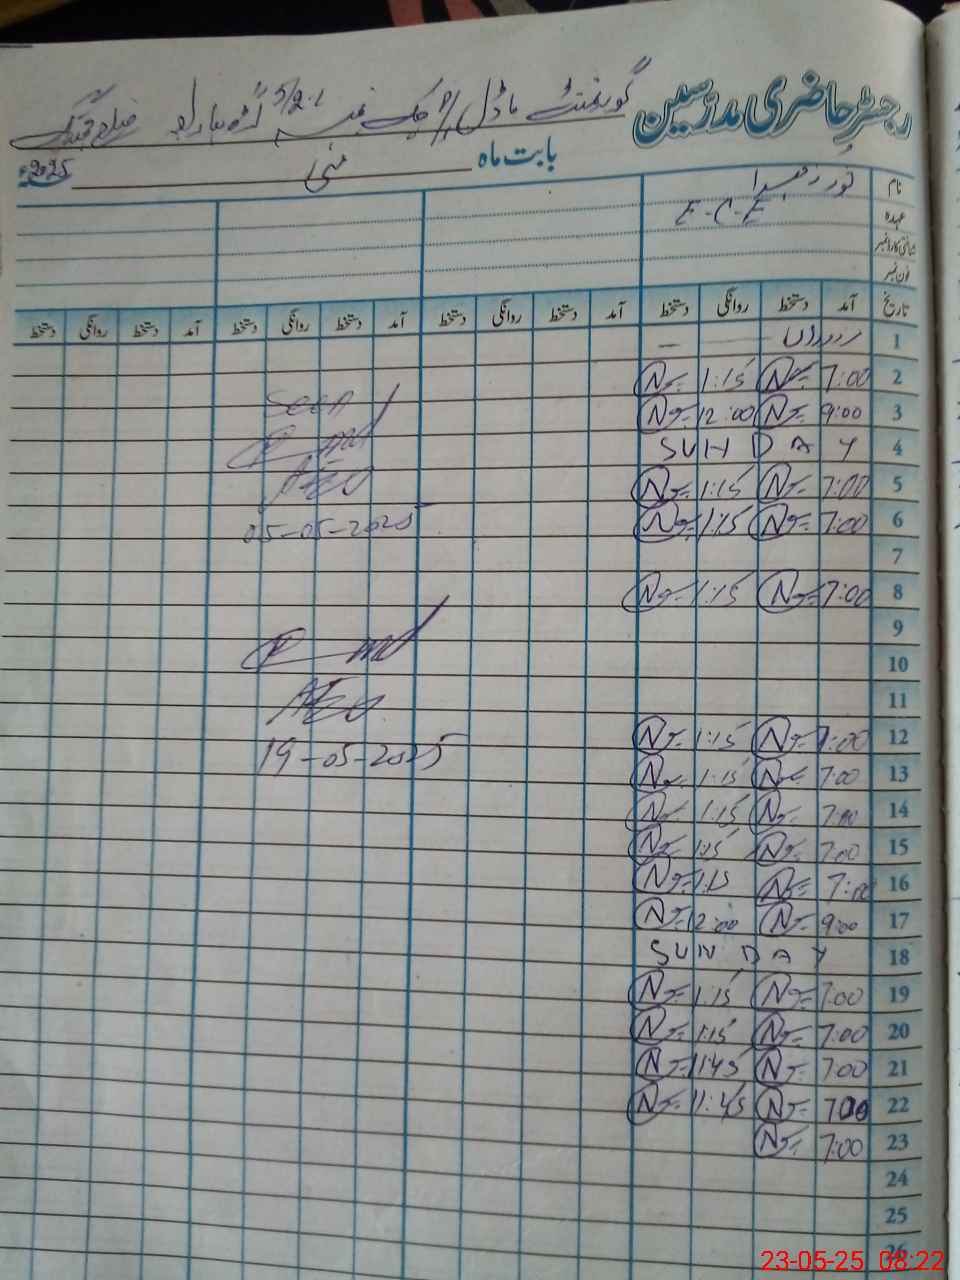 رجسٹر حاضری مدرسین
گورنمنٹ ماڈل پرائمری چک نمبر 5/2-L
بابت ماہ مئی 2025ء
نام نور
عہدہ E-C-E
شناختی کارڈ نمبر
فون نمبر
تاریخ آمد دستخط روانگی دستخط آمد دستخط روانگی دستخط آمد دستخط روانگی دستخط آمد دستخط روانگی دستخط
1 —
2 7:00 1:15
3 9:00 12:00
4 SUNDAY
5 7:00 1:15
6 7:00 1:15
7
8 7:00 1:15
9
10
11
12 7:00 1:15
13 7:00 1:15
14 7:00 1:15
15 7:00 1:15
16 7:00 1:15
17 9:00 12:00
18 SUNDAY
19 7:00 1:15
20 7:00 1:15
21 7:00 11:45
22 7:00 11:45
23 7:00
24
25
26
Seen
AEO
05-05-2025
AEO
19-05-2025
23-05-25 08:22